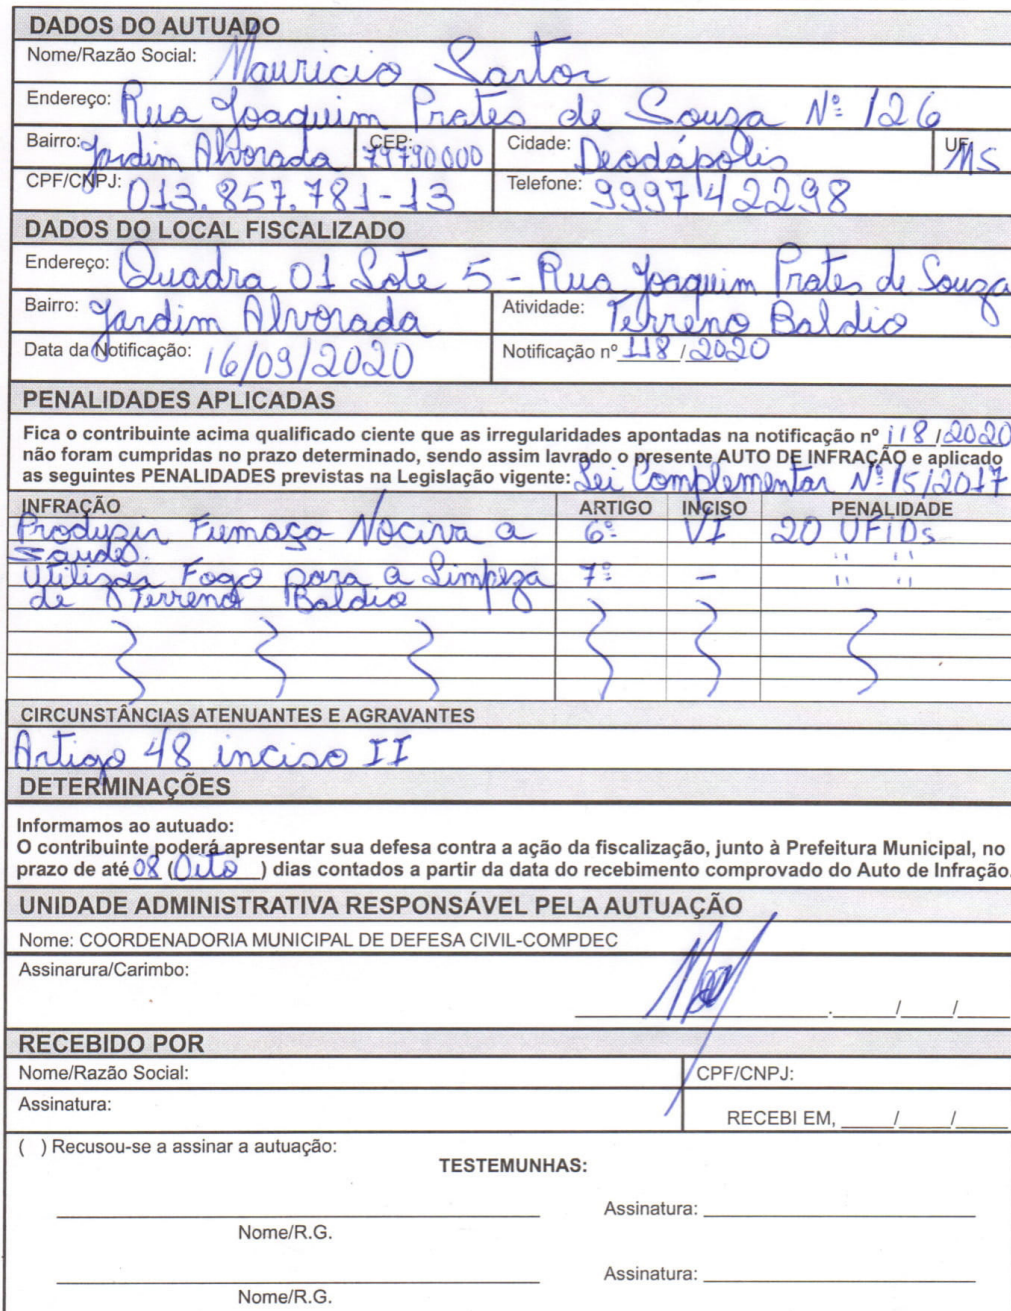 DADOS DO AUTUADO
Nome/Razão Social: Mauricio Sartor
Endereço: Rua Joaquim Prates de Souza Nº 126
Bairro: Jardim Alvorada CEP: 79790000 Cidade: Deodápolis UF: MS
CPF/CNPJ: 013.857.781-13 Telefone: 999742298
DADOS DO LOCAL FISCALIZADO
Endereço: Quadra 01 Lote 5 - Rua Joaquim Prates de Souza
Bairro: Jardim Alvorada Atividade: Terreno Baldio
Data da Notificação: 16/09/2020 Notificação nº 118 / 2020
PENALIDADES APLICADAS
Fica o contribuinte acima qualificado ciente que as irregularidades apontadas na notificação nº 118 / 2020
não foram cumpridas no prazo determinado, sendo assim lavrado o presente AUTO DE INFRAÇÃO e aplicado
as seguintes PENALIDADES previstas na Legislação vigente: Lei Complementar Nº 15/2017
INFRAÇÃO ARTIGO INCISO PENALIDADE
Produzir Fumaça Nociva a 6º VI 20 UFIDs
Saude. " "
Utilizar Fogo para a Limpeza 7º - " "
de Terreno Baldio
CIRCUNSTÂNCIAS ATENUANTES E AGRAVANTES
Artigo 48 inciso II
DETERMINAÇÕES
Informamos ao autuado:
O contribuinte poderá apresentar sua defesa contra a ação da fiscalização, junto à Prefeitura Municipal, no
prazo de até 08 (Oito) dias contados a partir da data do recebimento comprovado do Auto de Infração.
UNIDADE ADMINISTRATIVA RESPONSÁVEL PELA AUTUAÇÃO
Nome: COORDENADORIA MUNICIPAL DE DEFESA CIVIL-COMPDEC
Assinarura/Carimbo:
____________________.____/____/____
RECEBIDO POR
Nome/Razão Social: CPF/CNPJ:
Assinatura: RECEBI EM, ____/____/____
( ) Recusou-se a assinar a autuação:
TESTEMUNHAS:
Assinatura: ____________________
Nome/R.G.
Assinatura: ____________________
Nome/R.G.